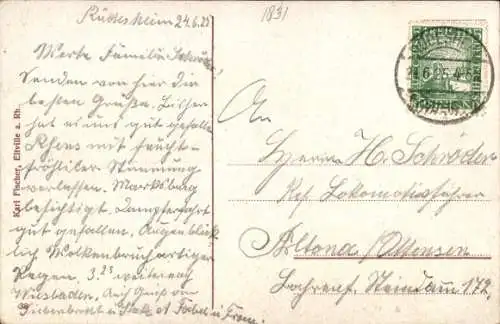 Rüdesheim 24.6.25
1831
Werte Familie Schröder
Senden von hier die
besten Grüße. Bisher
hat es uns gut gefallen
Rhens mit feucht-
fröhlicher Stimmung
verlassen. Marksburg
besichtigt. Dampferfahrt
gut gefallen. Augenblick
lich Wolkenbruchartiger
Regen. 3.25 weiter nach
Wiesbaden. Auch Gruß von
u. Frau.
Karl Fischer, Eltville a. Rh.
An
Herrn H. Schröder
Lokomotivführer
Altona / Ottensen
Steindamm 172